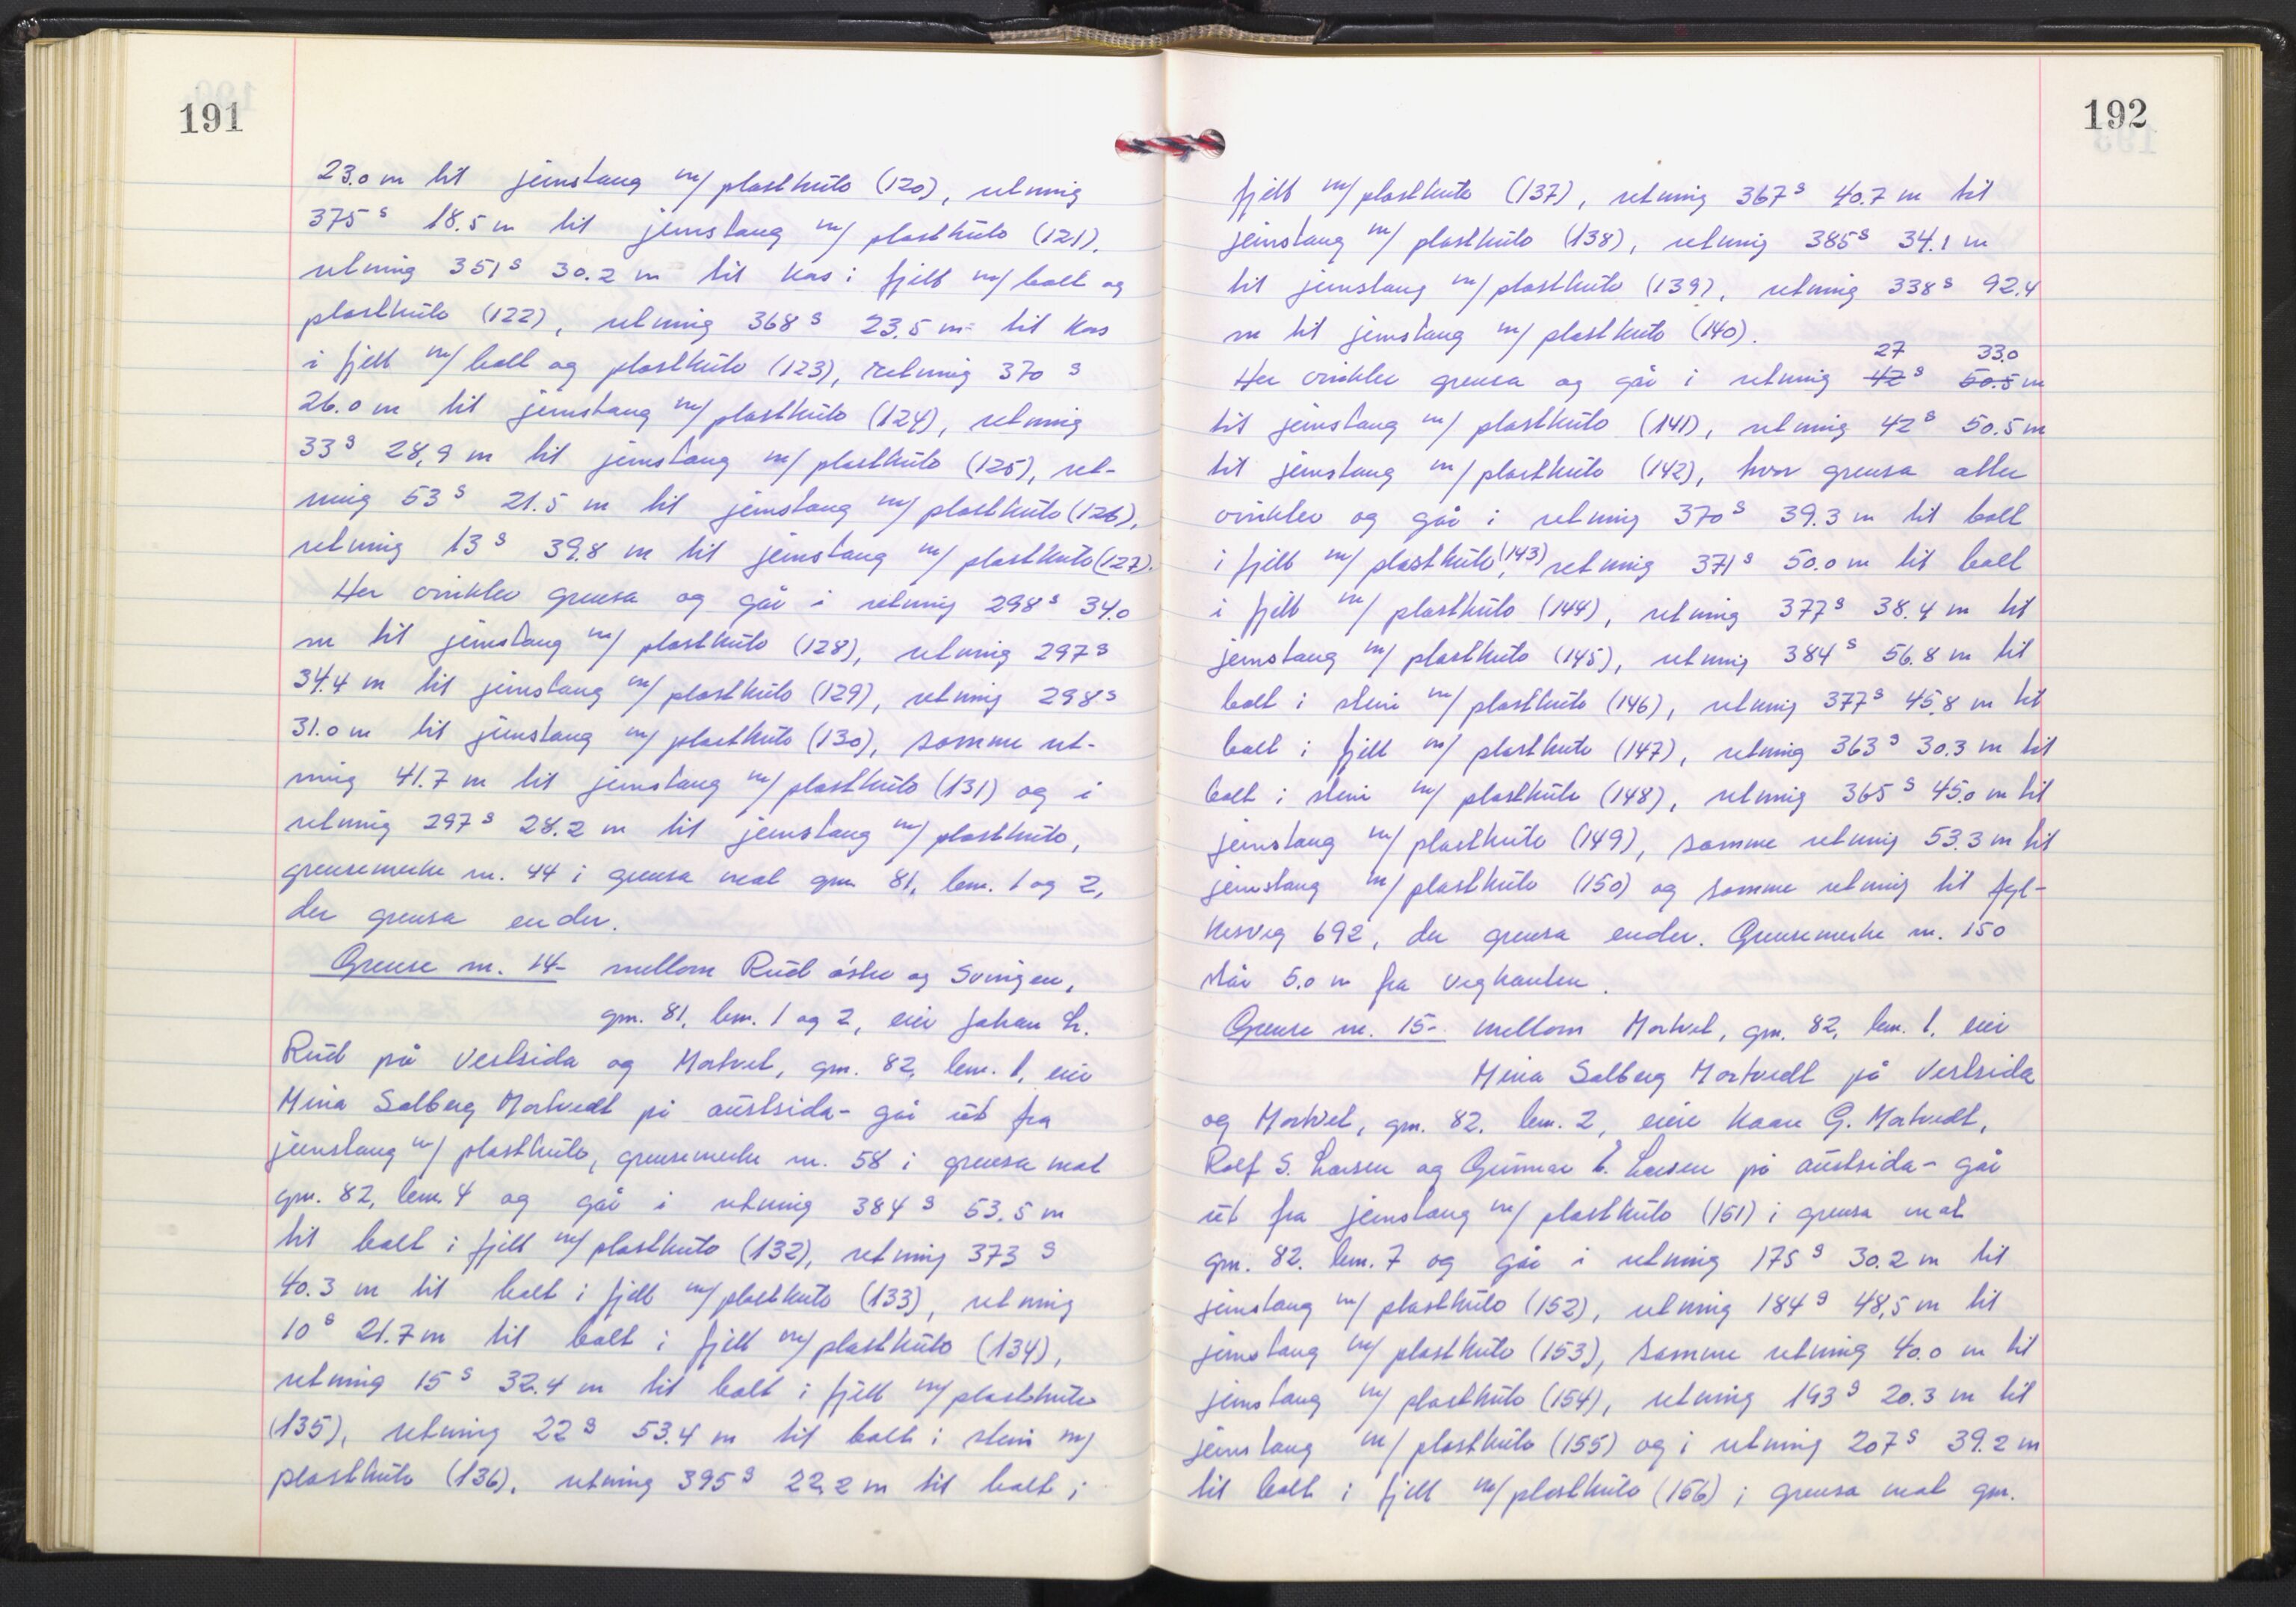 191
23.0 m til jernstang m/plasthüto (120), retning
375 g 18.5 m til jernstang m/ plasthüto (121),
retning 351 g 30.2 m til kors i fjell m/bolt og
plasthüto (122), retning 368 g 23.5 m til kors
i fjell m/bolt og plasthüto (123), retning 370 g
26.0 m til jernstang m/plasthüto (124), retning
33 g 28,9 m til jernstang m/plasthüto (125), ret-
ning 53 g 21.5 m til jernstang m/plasthüto (126),
retning 13 g 39.8 m til jernstang m/plasthuto (127).
Her vinkler grensa og går i retning 298 g 34.0
m til jernstang m/ plasthüto (128), retning 297 g
34.4 m til jernstang m/plasthüto (129), retning 298 g
31.0 m til jernstang m/plasthüto (130), samme ret-
ning 41.7 m til jernstang m/plasthüto (131) og i
retning 297 g 28.2 m til jernstang m/plasthüto,
grensemerke nr. 44 i grensa mot gnr. 81, bnr. 1 og 2,
der grensa ender.
Grense nr. 14 - mellom Rüd østre og Svingen,
gnr. 81, bnr. 1 og 2, eier Johan L.
Rüd på vestsida og Mortvet, gnr. 82, bnr. 1, eier
Mina Solberg Mortvedt på aüstsida - går üt fra
jernstang m/plasthüto, grensemerke nr. 58 i grensa mot
gnr. 82, bnr. 4 og går i retning 384 g 53.5 m
til bolt i fjell m/plasthuto (132), retning 373 g
40.3 m til bolt i fjell m/plasthuto (133), retning
10 g 21.7 m til bolt i fjell m/plasthüto (134),
retning 15 g 32.4 m til bolt i fjell m/plasthüto
(135), retning 22 g 53.4 m til bolt i stein m/
plasthüto (136), retning 395 g 22.2 m til bolt i
192
fjell m/plasthuto (137), retning 367 g 40.7 m til
jernstang m/plasthüto (138), retning 385 g 34.1 m
til jernstang m/plasthuto (139), retning 338 g 92.4
m til jernstang m/plasthuto (140).
27 33.0
Her vinkler grensa og går i retning 42 g 50.5 m
til jernstang m/ plasthüto (141), retning 42 g 50.5 m
til jernstang m/plasthüto (142), hvor grensa atter
vinkler og går i retning 370 g 39.3 m til bolt
i fjell m/plasthüto (143), retning 371 g 50.0 m til bolt
i fjell m/plasthüto (144), retning 377 g 38.4 m til
jernstang m/plasthuto (145), retning 384 g 56.8 m til
bolt i stein m/plasthuto (146), retning 377 g 45,8 m til
bolt i fjell m/plasthuto (147), retning 363 g 30.3 m til
bolt i stein m/plasthüto (148), retning 365 g 45.0 m til
jernstang m/plasthuto (149), samme retning 53.3 m til
jernstang m/plasthüto (150) og samme retning til fyl-
kesveg 692, der grensa ender. Grensemerke nr. 150
står 5.0 m fra vegkanten.
Grense nr. 15 - mellom Mortvet, gnr. 82, bnr. 1, eier
Mina Solberg Mortvedt på vestsida
og Mortvet, gnr. 82, bnr. 2, eiere Kaare G. Mortvedt,
Rolf S. Larsen og Günnar E. Larsen på aüstsida - går
üt fra jernstang m/plasthüto (151) i grensa mot
gnr. 82. bnr. 7 og går i retning 175 g 30.2 m til
jernstang m/plasthüto (152), retning 184 g 48,5 m til
jernstang m/plasthuto (153), samme retning 40.0 m til
jernstang m/plasthüto (154), retning 193 g 20.3 m til
jernstang m/plasthüto (155) og i retning 207 g 39.2 m
til bolt i fjell m/plasthüto (156) i grensa mot gnr.